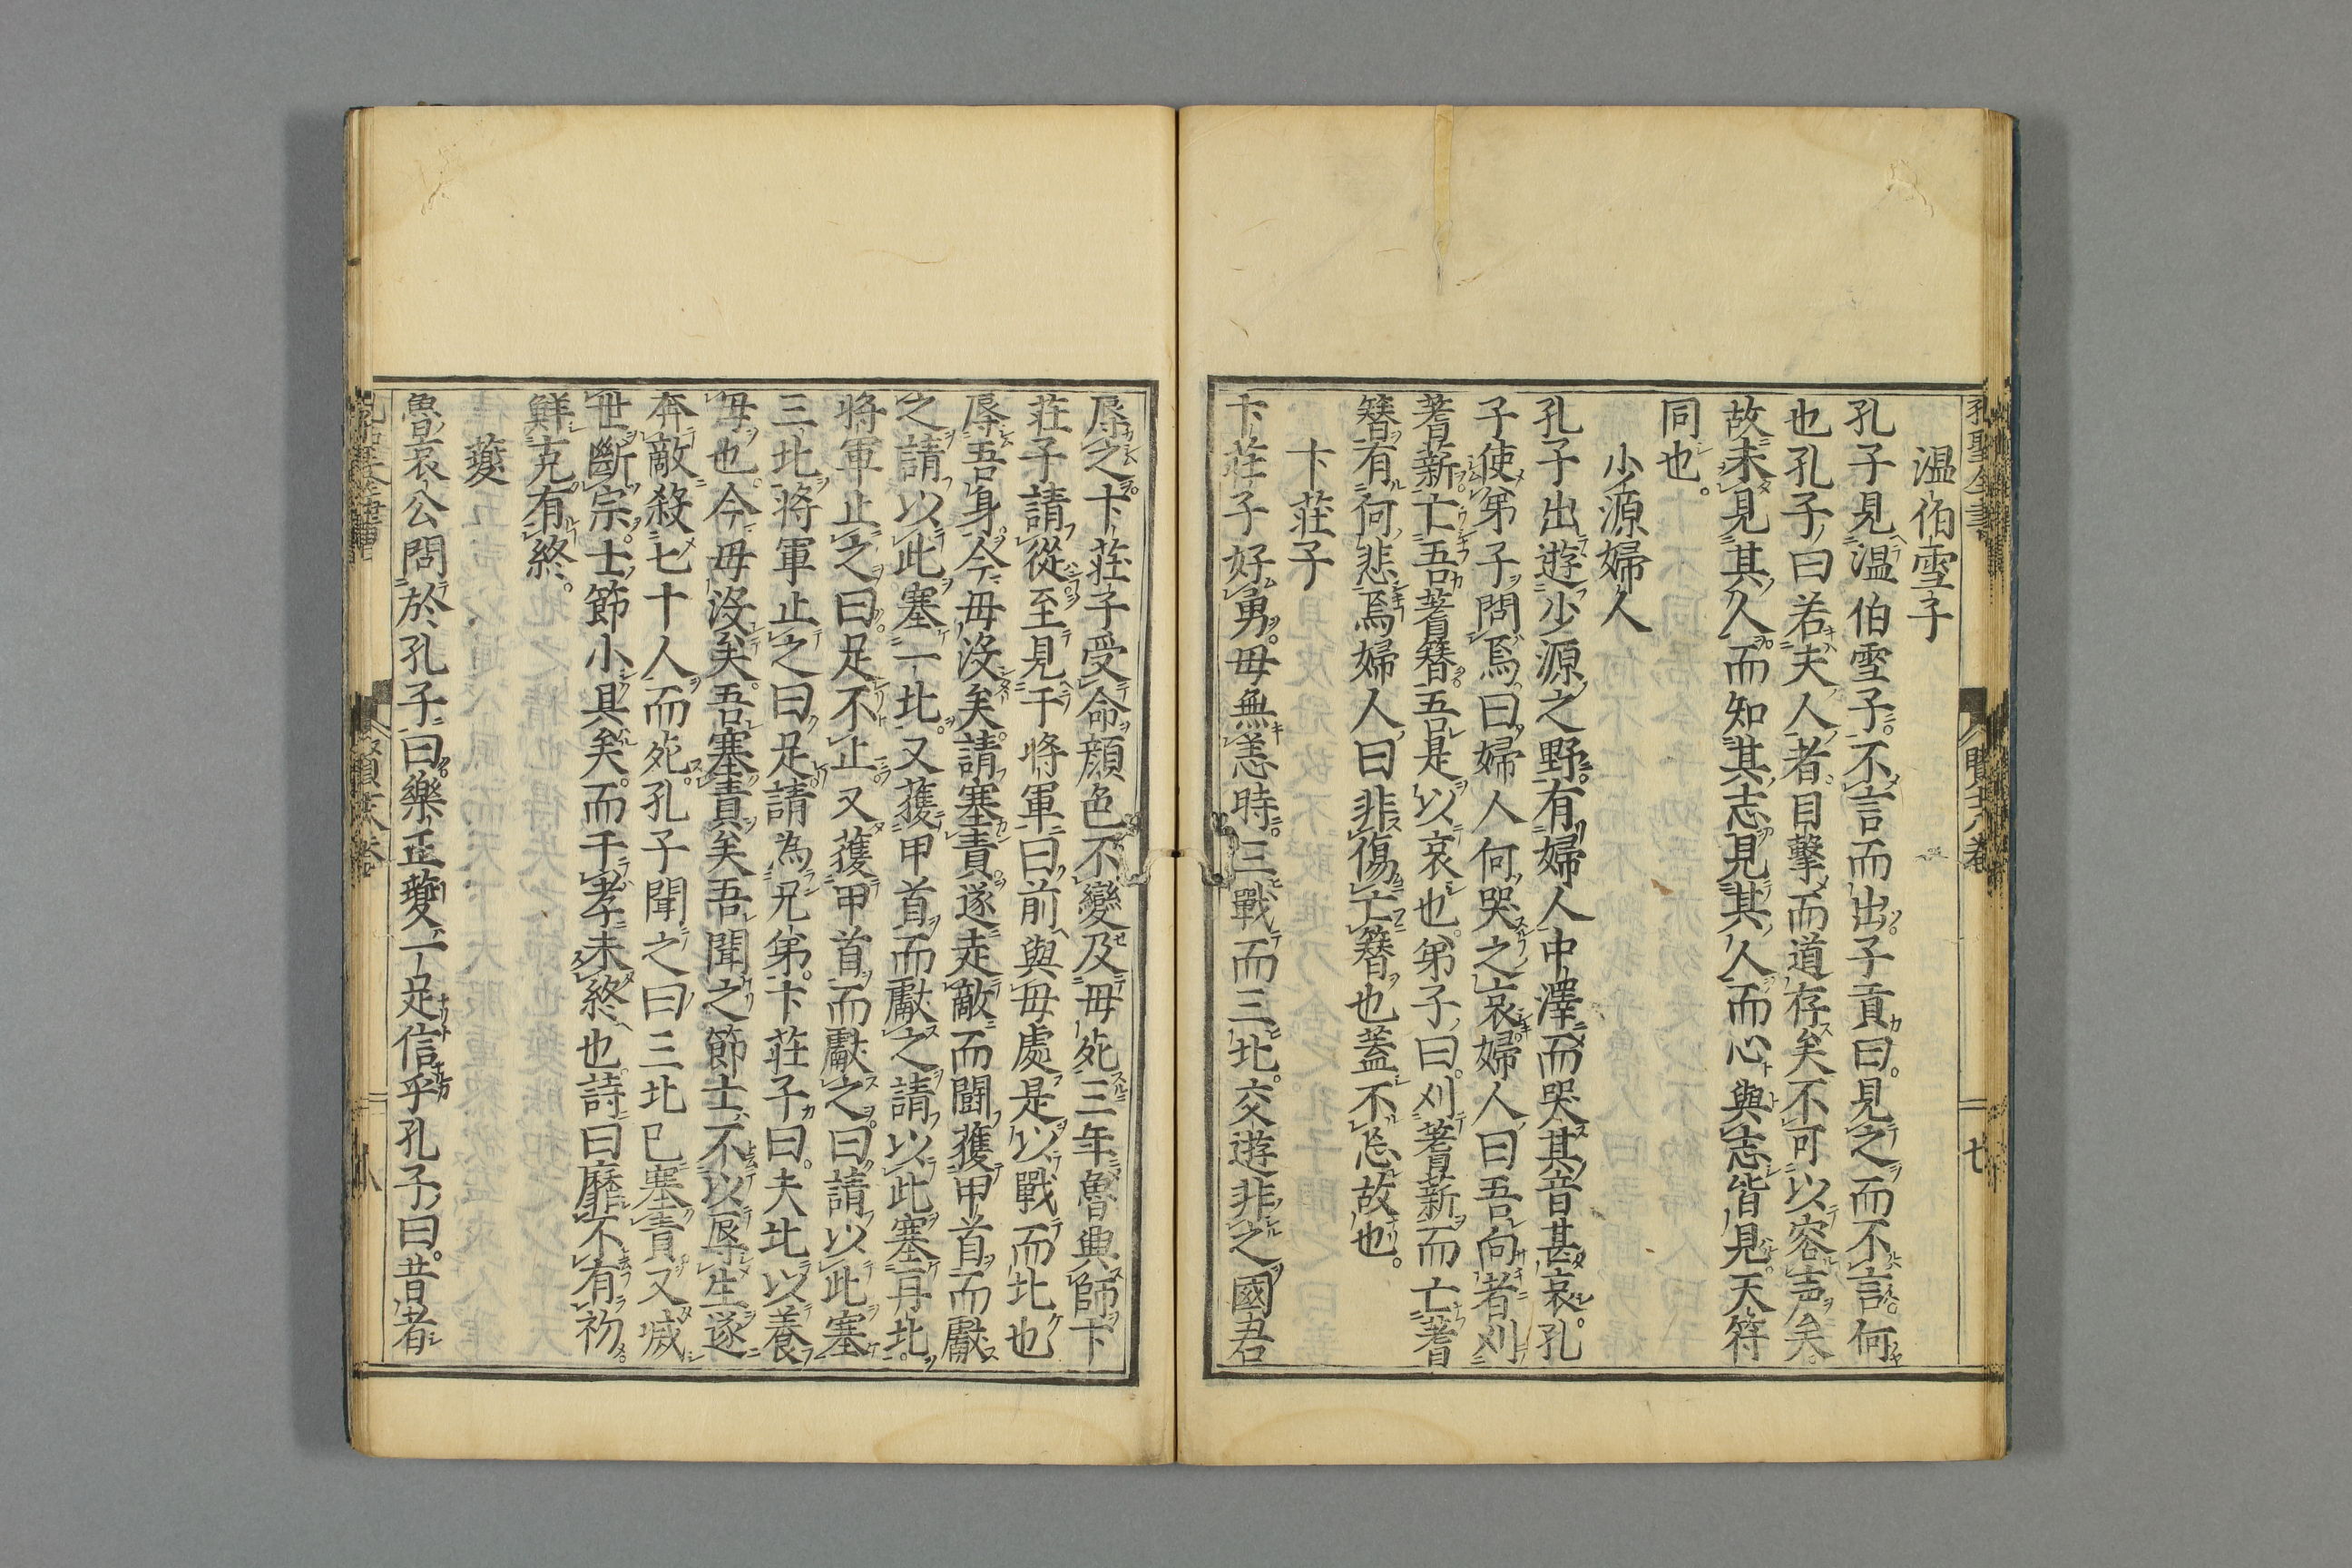 温伯雪子
孔子見温伯雪子不言而出子貢曰見之而不言何
也孔子曰若夫人者目擊而道存矣不可以容声矣
故未見其人而知其志見其人而心與志皆見天符
同也
少源婦人
孔子出遊少源之野有婦人中澤而哭其音甚哀孔
子使弟子問焉曰婦人何哭之哀婦人曰吾向者刈
蓍薪亡吾蓍簮吾是以哀也弟子曰刈蓍薪而亡蓍
簮有何悲焉婦人曰非傷亡簮也蓋不忘故也
卞莊子
卞莊子好勇母無恙時三戰而三北交遊非之國君
辱之卞莊子受命顔色不變及母死三年魯興師卞
莊子請從至見于將軍曰前與母處是以戰而北也
辱吾身今母沒矣請塞責遂走敵而鬪獲甲首而獻
之請以此塞一北又獲甲首而獻之請以此塞再北
將軍止之曰足不止又獲甲首而獻之曰請以此塞
三北將軍止之曰足請為兄弟卞莊子曰夫北以養
母也今母沒矣吾塞責矣吾聞之節士不以辱生遂
奔敵殺七十人而死孔子聞之曰三北已塞責又滅
世斷宗士節小具矣而于孝未終也詩曰靡不有初
鮮克有終
夔
魯哀公問於孔子曰樂正夔一足信乎孔子曰昔者